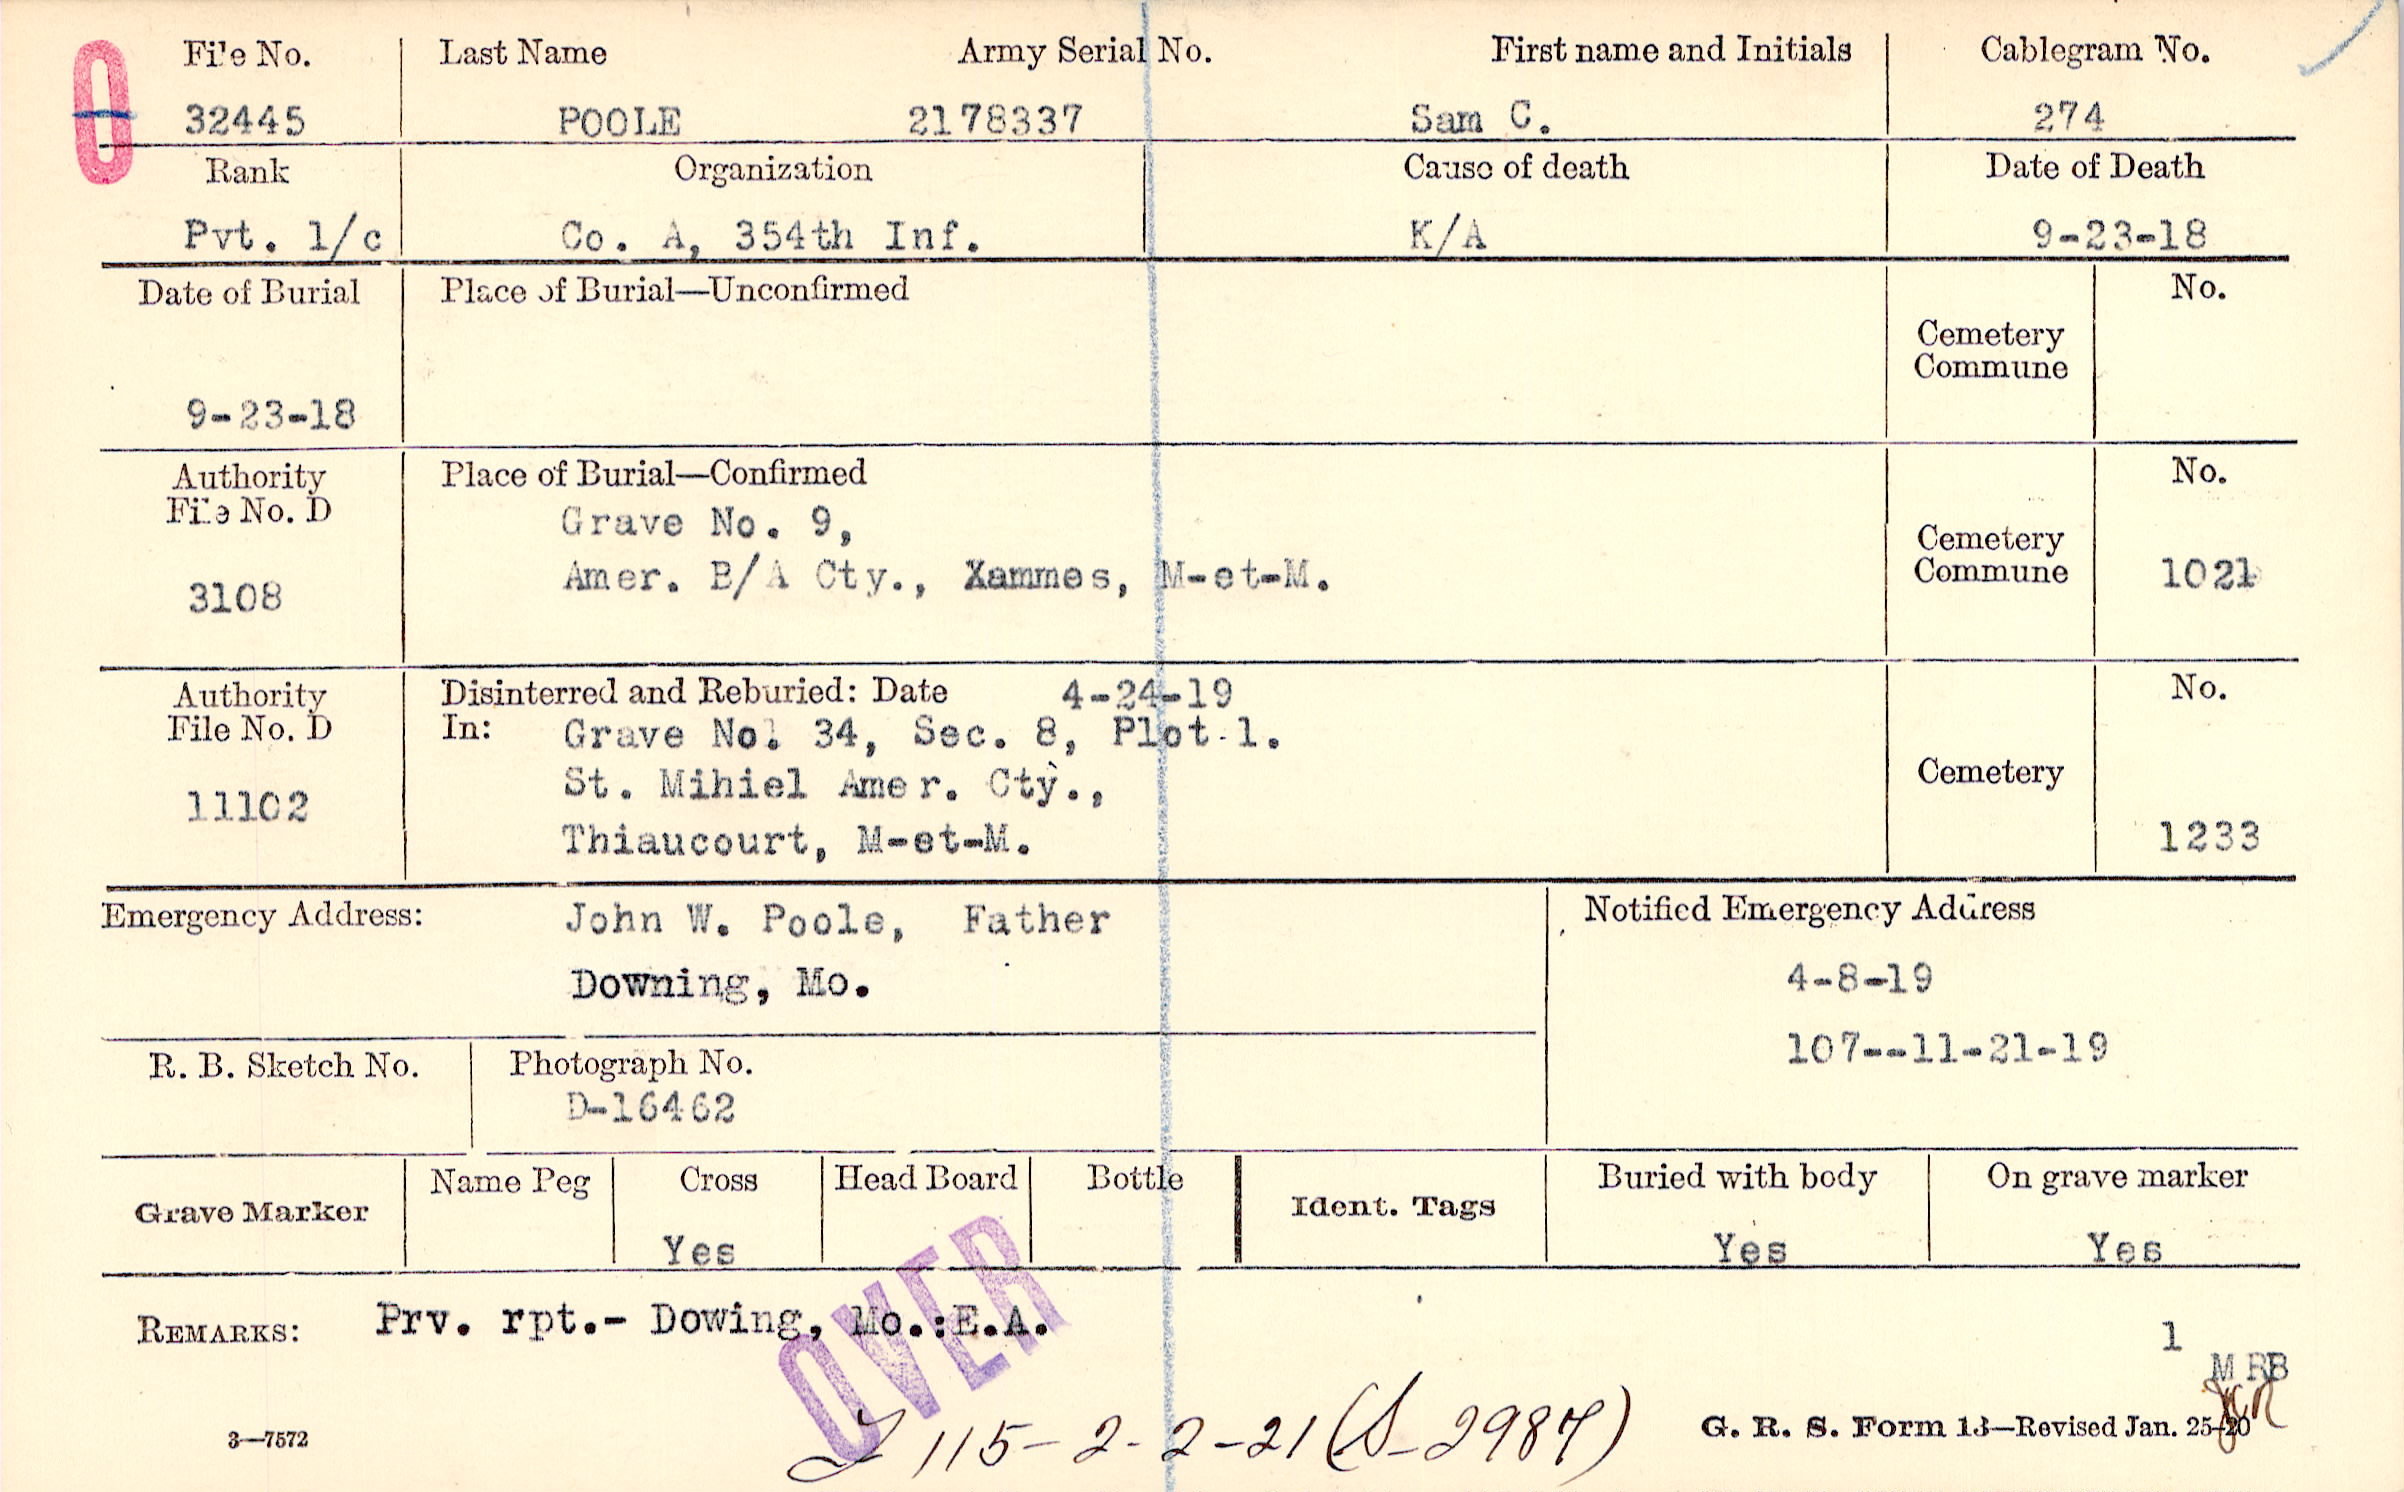 O
File No. Last Name Army Serial No. First name and Initials Cablegram No.
32445 POOLE 2178337 Sam C. 274
Rank Organization Cause of death Date of Death
Pvt. 1/c Co. A, 354th Inf. K/A 9-23-18
Date of Burial Place of Burial—Unconfirmed No.
Cemetery
Commune
9-23-18
Authority Place of Burial—Confirmed No.
File No. D Grave No. 9,
Cemetery
3108 Amer. B/A Cty., Xammes, M-et-M. Commune 1021
Authority Disinterred and Reburied: Date 4-24-19 No.
File No. D In: Grave No. 34, Sec. 8, Plot 1.
St. Mihiel Amer. Cty., Cemetery
11102
Thiaucourt, M-et-M. 1233
Emergency Address: John W. Poole, Father Notified Emergency Address
Downing, Mo. 4-8-19
107--11-21-19
R. B. Sketch No. Photograph No.
D-16462
Grave Marker Name Peg Cross Head Board Bottle Ident. Tags Buried with body On grave marker
Yes Yes Yes
REMARKS: Prv. rpt.- Dowing, Mo.:E.A. 1
OVER
MRB
115-2-2-21 (S-2987)
3—7572 G. R. S. Form 13—Revised Jan. 25-20